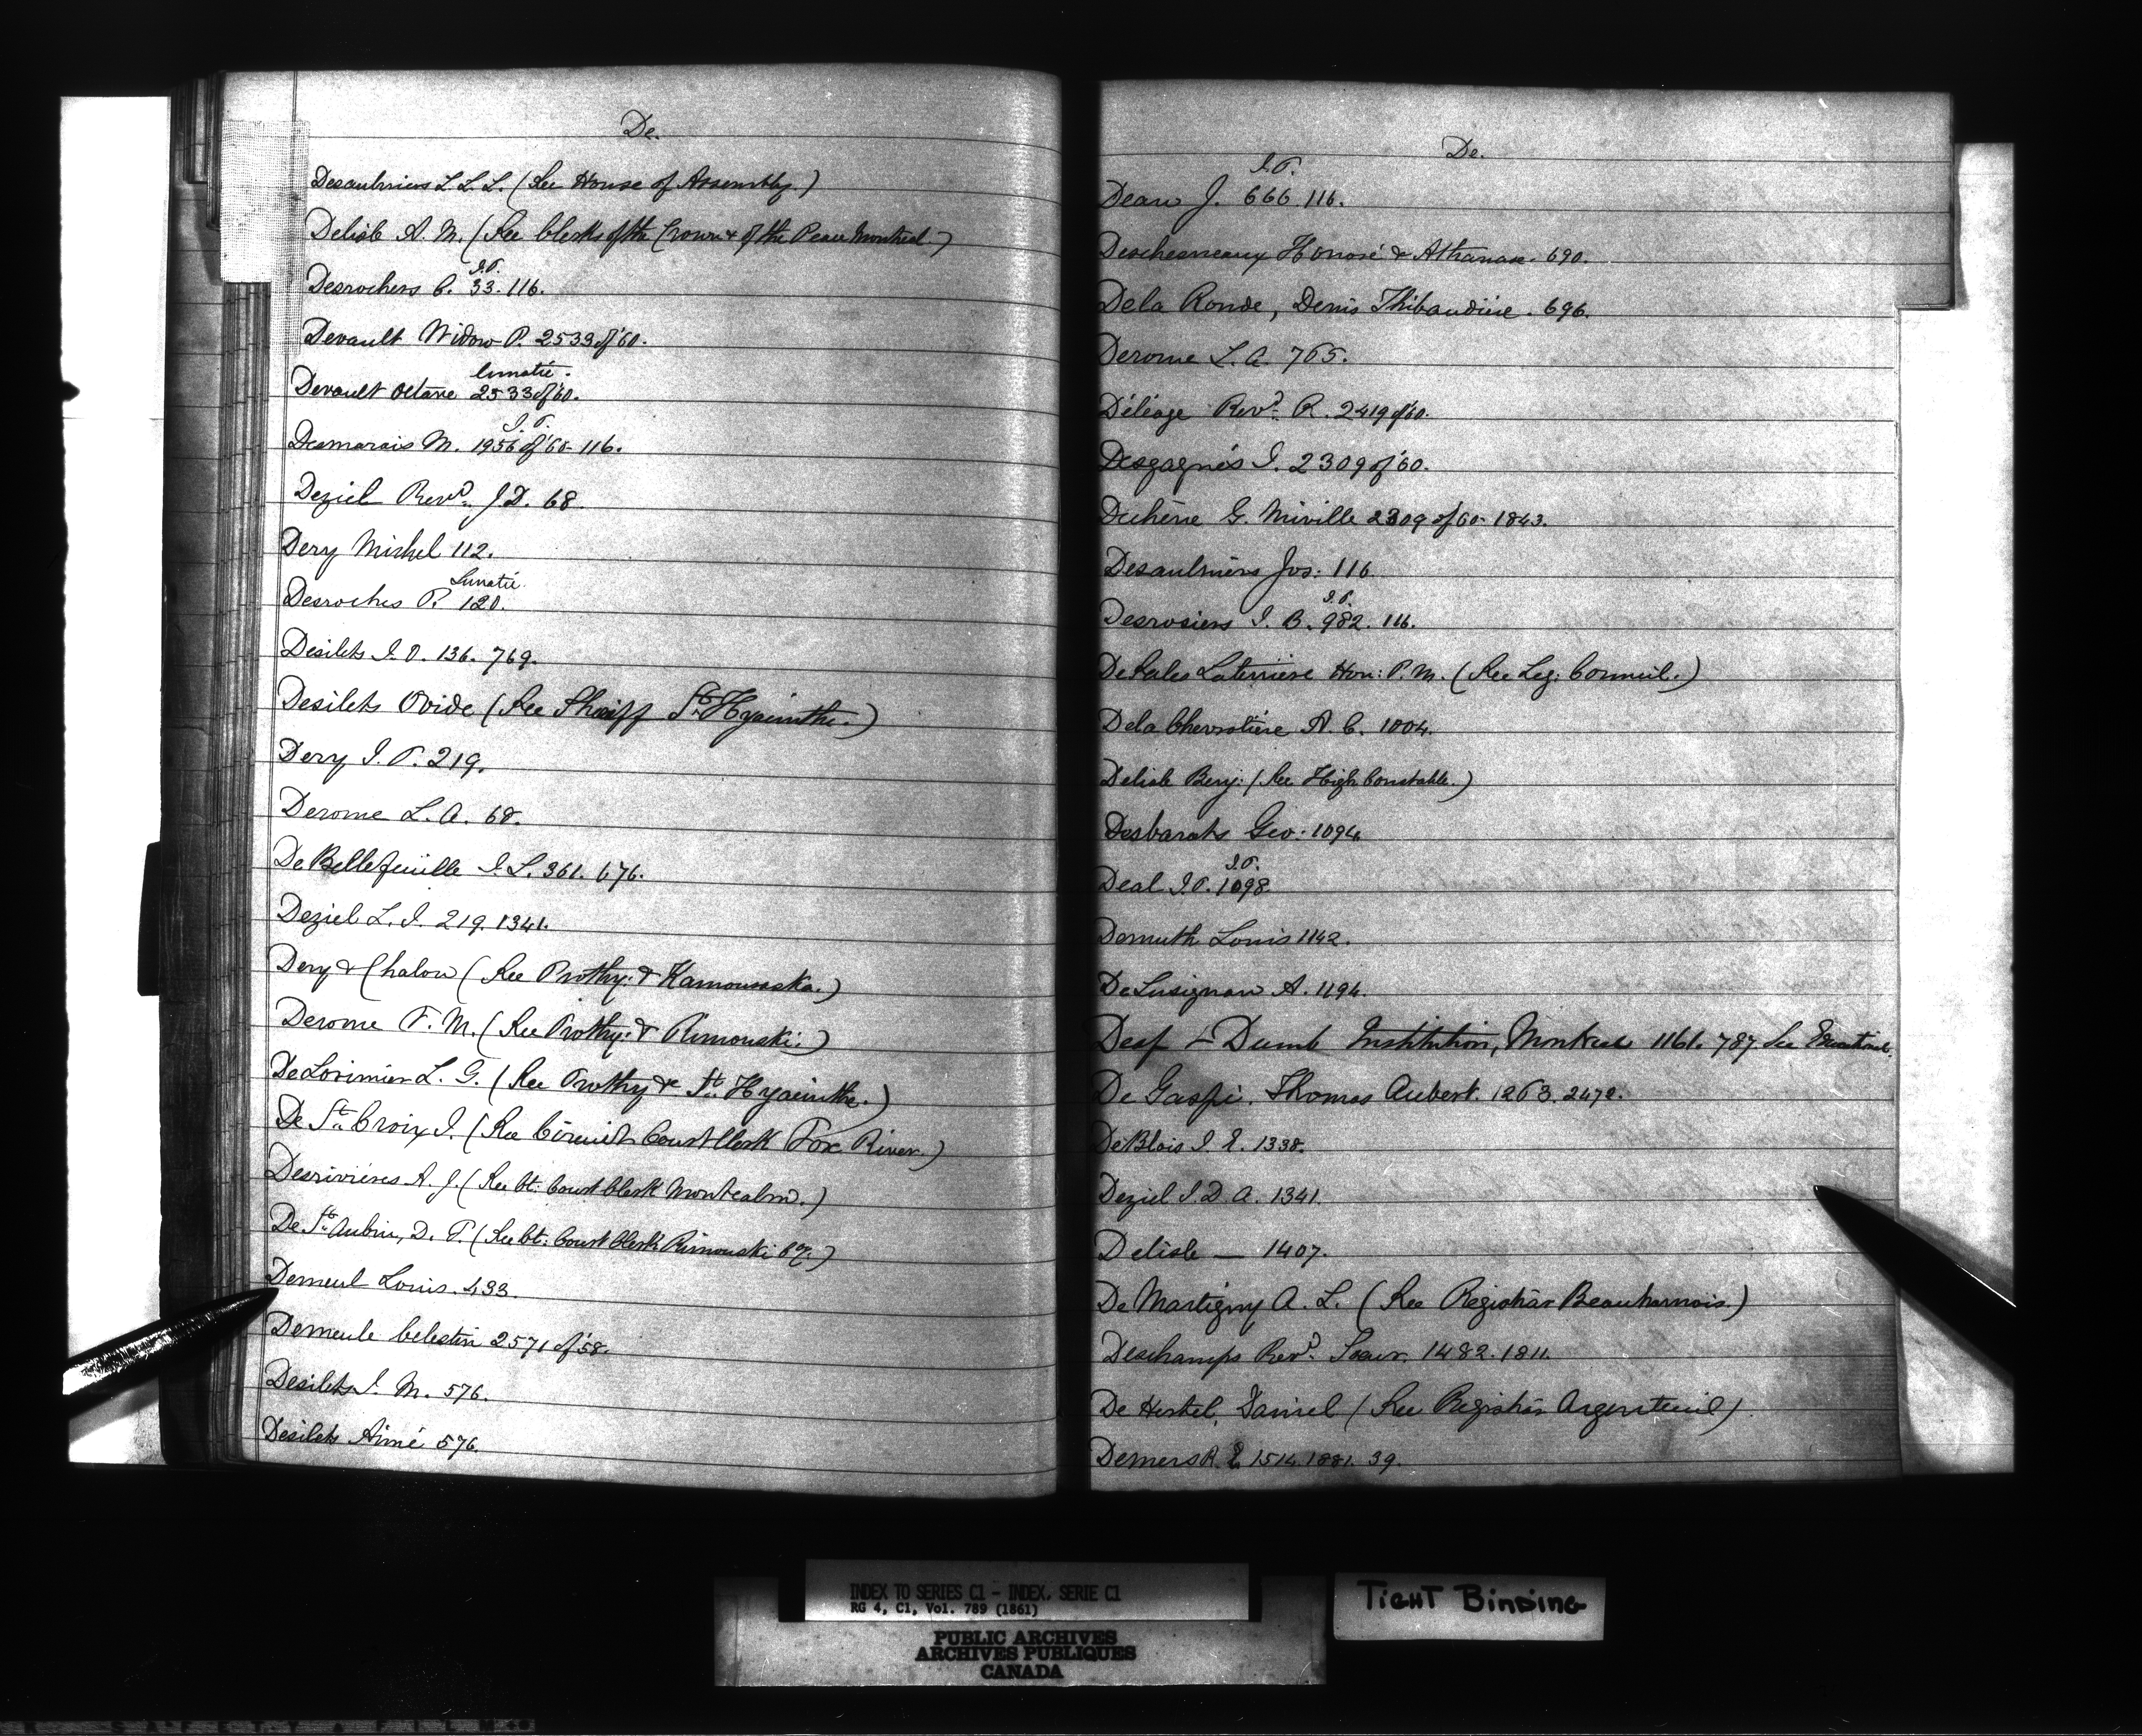 De.
Desaulniers L. L. L. (See House of Assembly.)
Delisle A. M. (See Clerks of the Crown & of the Peace Montreal.)
J.P.
Desrochers C. 33. 116.
Devault Widow P. 2533 of '60.
lunatic.
Devault Octave 2533 of '60.
J.P.
Desmarais M. 1956 of '60 - 116.
Deziel Revd. J D. 68.
Dery Michel 112.
Lunatic
Desroches P. 120.
Desilets J. O. 136. 769.
Desilets Ovide (See Sheriff St. Hyacinthe.)
Dery J. P. 219.
Derome L. A. 68.
De Bellefeuille J. L. 361. 676.
Deziel L. J. 219. 1341.
Dery & Chalou (See Prothy: & Kamouraska.)
Derome F. M. (See Prothy: & Rimouski.)
De Lorimier L. G. (See Prothy & St. Hyacinthe.)
De St. Croix J. (See Circuit Court Clerk Fox River.)
Desrivières A. J. (See Ct: Court Clerk Montcalm.)
De St. Aubin, D. P. (See Ct: Court Clerk Rimouski Cy.)
Demeul Louis. 433.
Demeule Celestin 2571 of '58.
Desilets J. M. 576.
Desilets Aimé 576.
De.
J.P.
Dean J. 666. 116.
Deschesneaux Honoré & Athanase. 690.
De la Ronde, Denis Thibaudière. 696.
Derome L. A. 765.
Déléage Revd. R. 2419 of '60.
Desgagnés J. 2309 of '60.
Duchêne G. Miville 2309 of 60 - 1843.
Desaulniers Jos: 116.
J.P.
Desrosiers J. B. 982. 116.
De Sales Laterriere Hon: P. M. (See Leg: Council.)
De la Chevrotiere A. C. 1004.
Delisle Benj: (See High Constable.)
Desbarats Geo: 1094.
J.P.
Deal J. P. 1098.
Demuth Louis 1142.
De Lusignan A. 1194.
Deaf & Dumb Institution, Montreal 1161. 787. See Educational.
De Gaspé. Thomas Aubert. 1263. 2472.
De Blois J. E. 1338.
Deziel J. D. A. 1341.
Delisle — 1407.
De Martigny A. L. (See Registrar Beauharnois.)
Deschamps Revd. 1482. 1811.
De Hertel, Daniel (See Registrar Argenteuil)
Demers R. E. 1514. 1881. 39.
INDEX TO SERIES C1 - INDEX, SERIE C1
RG 4, C1, Vol. 789 (1861)
PUBLIC ARCHIVES
ARCHIVES PUBLIQUES
CANADA
TIGHT BINDING